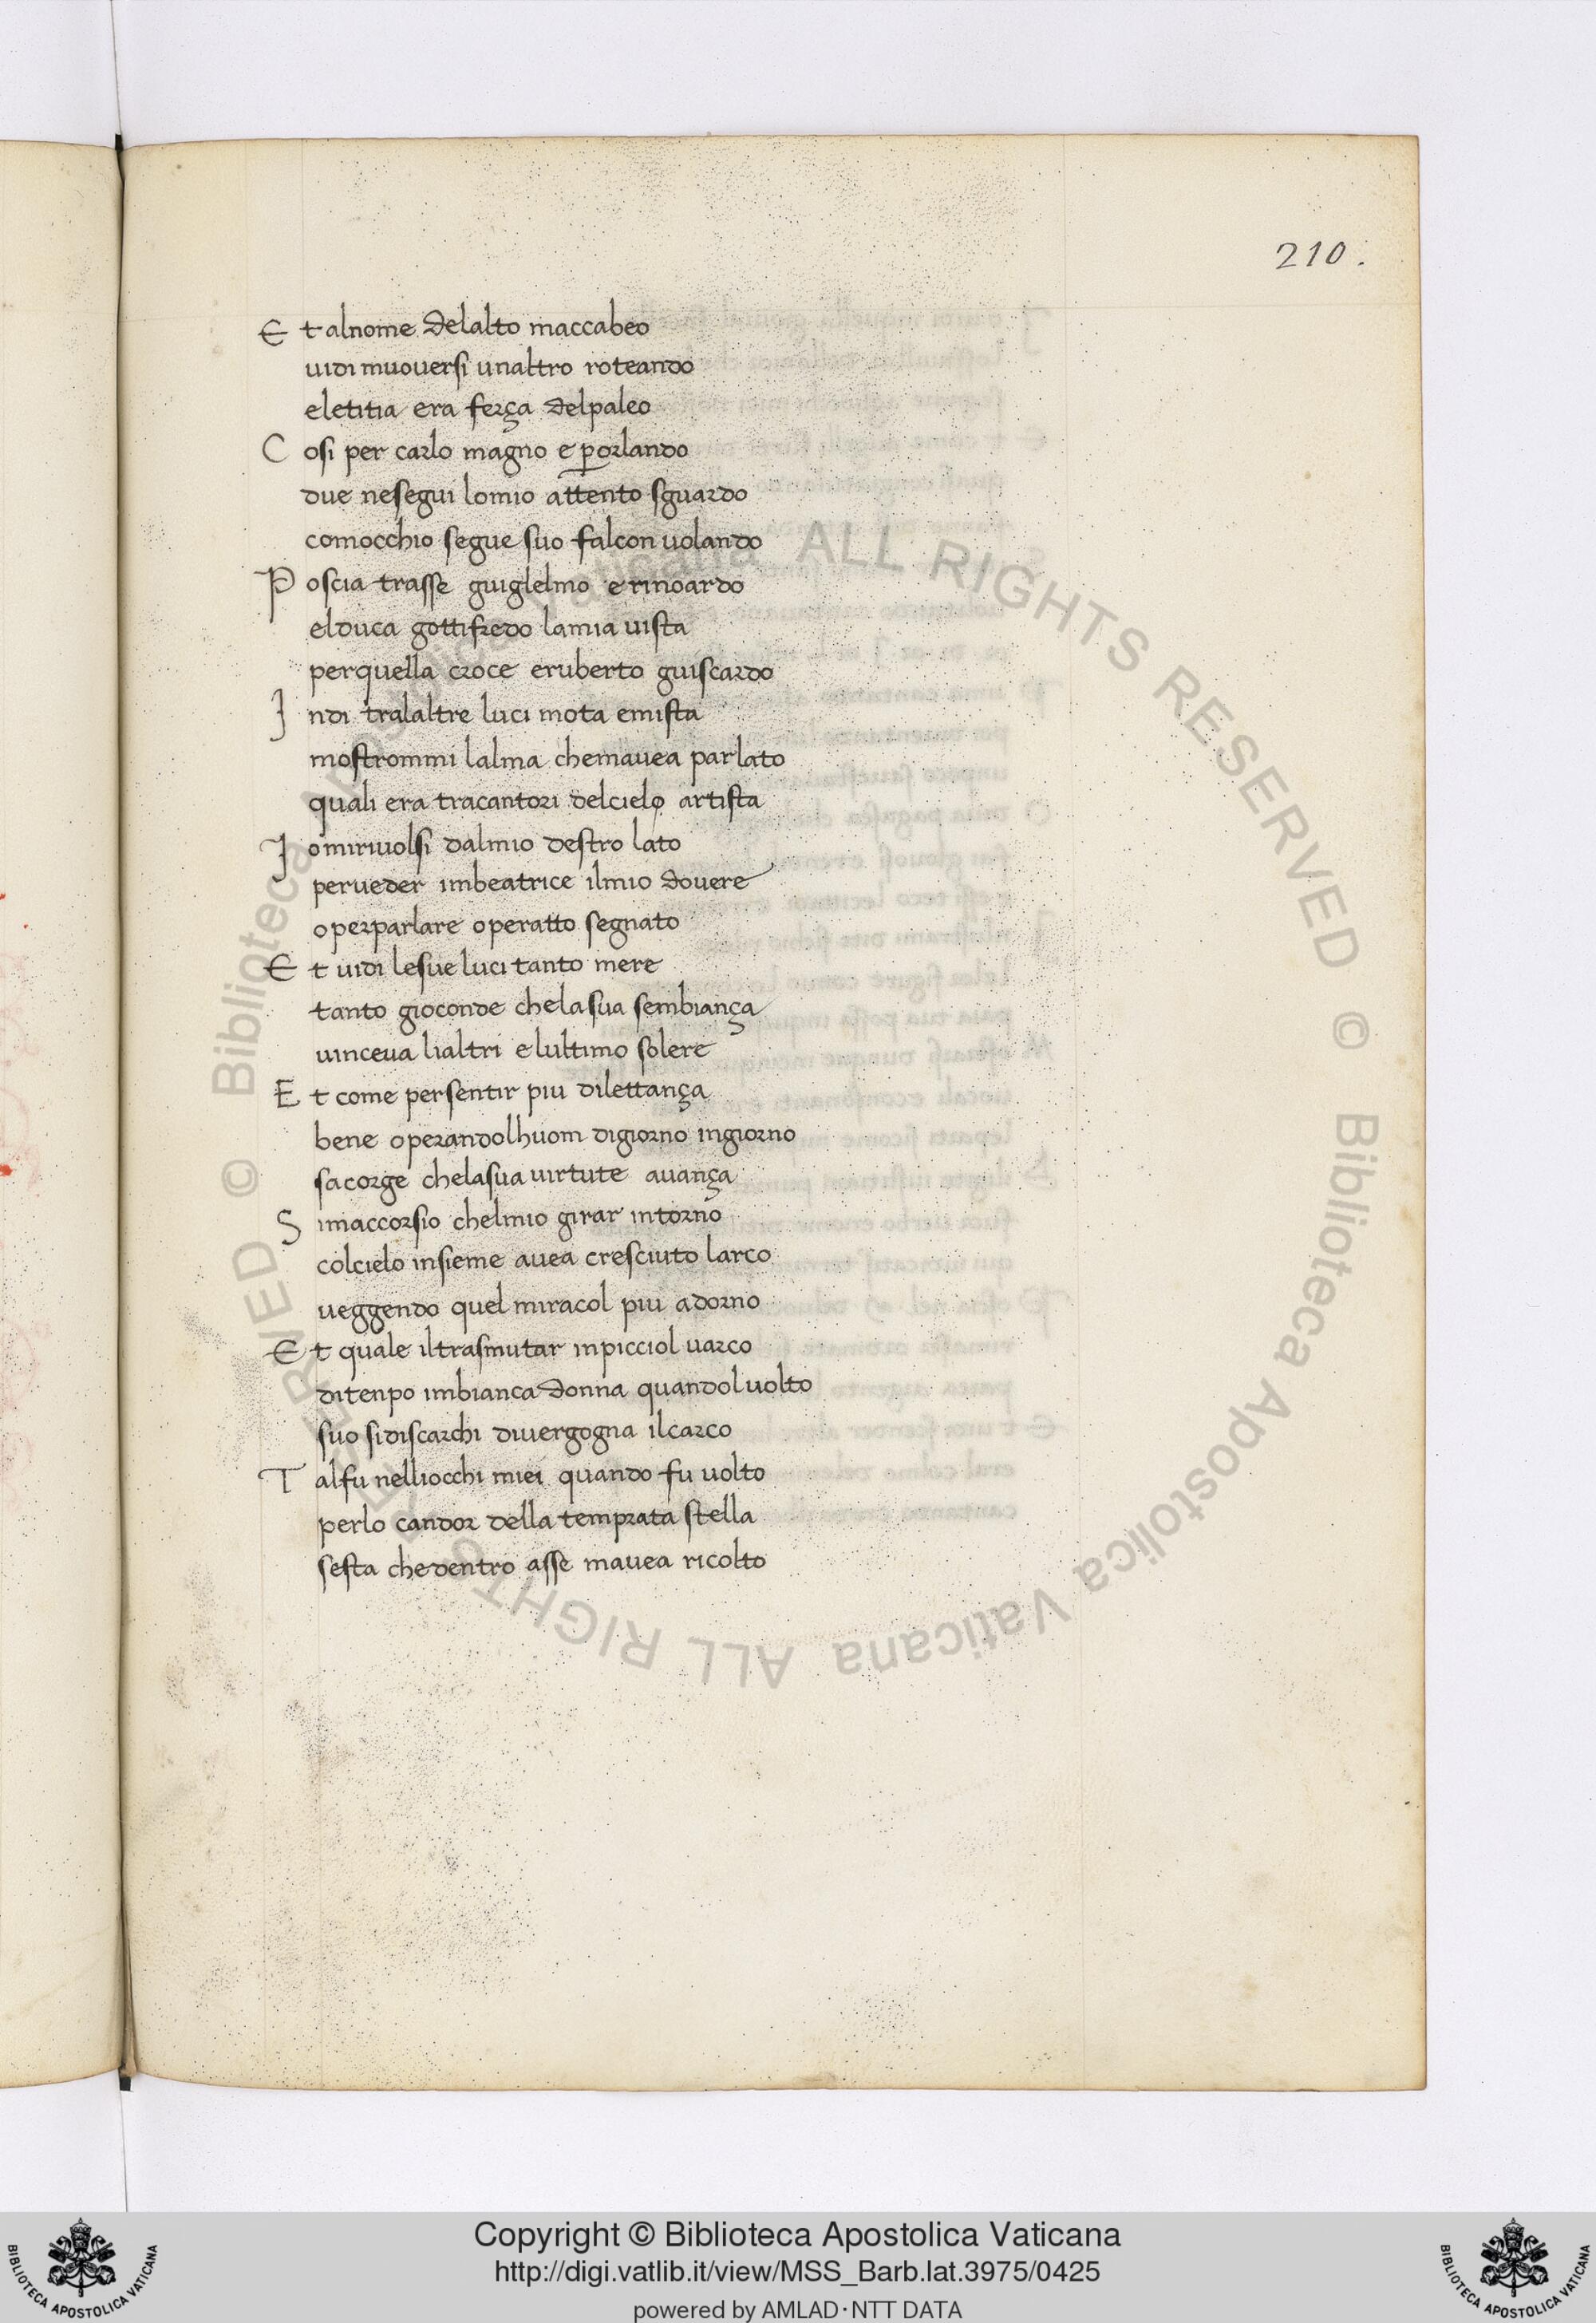 210.
Et alnome delalto maccabeo
uidi muouersi unaltro roteando
eletitia era ferça delpaleo
Cosi per carlo magno e ꝑorlando
due nesegui lomio attento sguardo
comocchio segue suo falcon uolando
Poscia trasse guiglelmo e rinoardo
elduca gottifredo lamia uista
perquella croce eruberto guiscardo
Indi tralaltre luci mota emista
mostrommi lalma chemauea parlato
quali era tracantori delcielo artista
Iomiriuolsi dalmio destro lato
perueder imbeatrice ilmio douere
operparlare operatto segnato
Et uidi lesue luci tanto mere
tanto gioconde chelasua sembiança
uinceua lialtri elultimo solere
Et come persentir piu dilettança
bene operandolhuom digiorno ingiorno
sacorge chelasua uirtute auança
Simaccorsio chelmio girar intorno
colcielo insieme auea cresciuto larco
ueggendo quel miracol piu adorno
Et quale iltrasmutar inpicciol uarco
ditenpo imbianca donna quandoluolto
suo sidiscarchi diuergogna ilcarco
Talfu nelliocchi miei quando fu uolto
perlo candor della temprata stella
sesta chedentro asse mauea ricolto
© Biblioteca Apostolica Vaticana ALL RIGHTS RESERVED © Biblioteca Apostolica Vaticana ALL RIGHTS RESERVED
Copyright © Biblioteca Apostolica Vaticana
http://digi.vatlib.it/view/MSS_Barb.lat.3975/0425
powered by AMLAD·NTT DATA
BIBLIOTECA APOSTOLICA VATICANA
BIBLIOTECA APOSTOLICA VATICANA